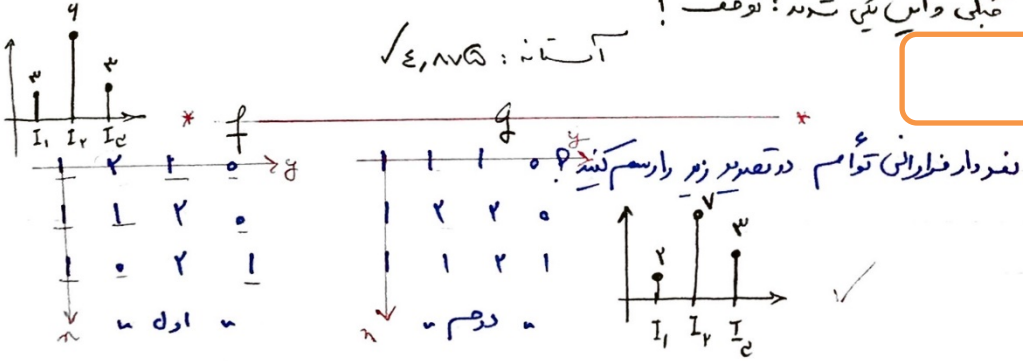 قبلی و این یکی شدند؛ توقف!
آستانه: ٤,٨٧٥ ✓
۳ ۶ ۳
I₁ I₂ I₃
* f g *
نمودار فراوانی توأم دو تصویر زیر را رسم کنید؟
۱ ۲ ۱ ۰ y
۱ ۱ ۲ ۰
۱ ۰ ۲ ۱
x " اول "
۱ ۱ ۱ ۰ y
۱ ۲ ۲ ۰
۱ ۱ ۲ ۱
x " دوم "
۲ ۷ ۳ ✓
I₁ I₂ I₃